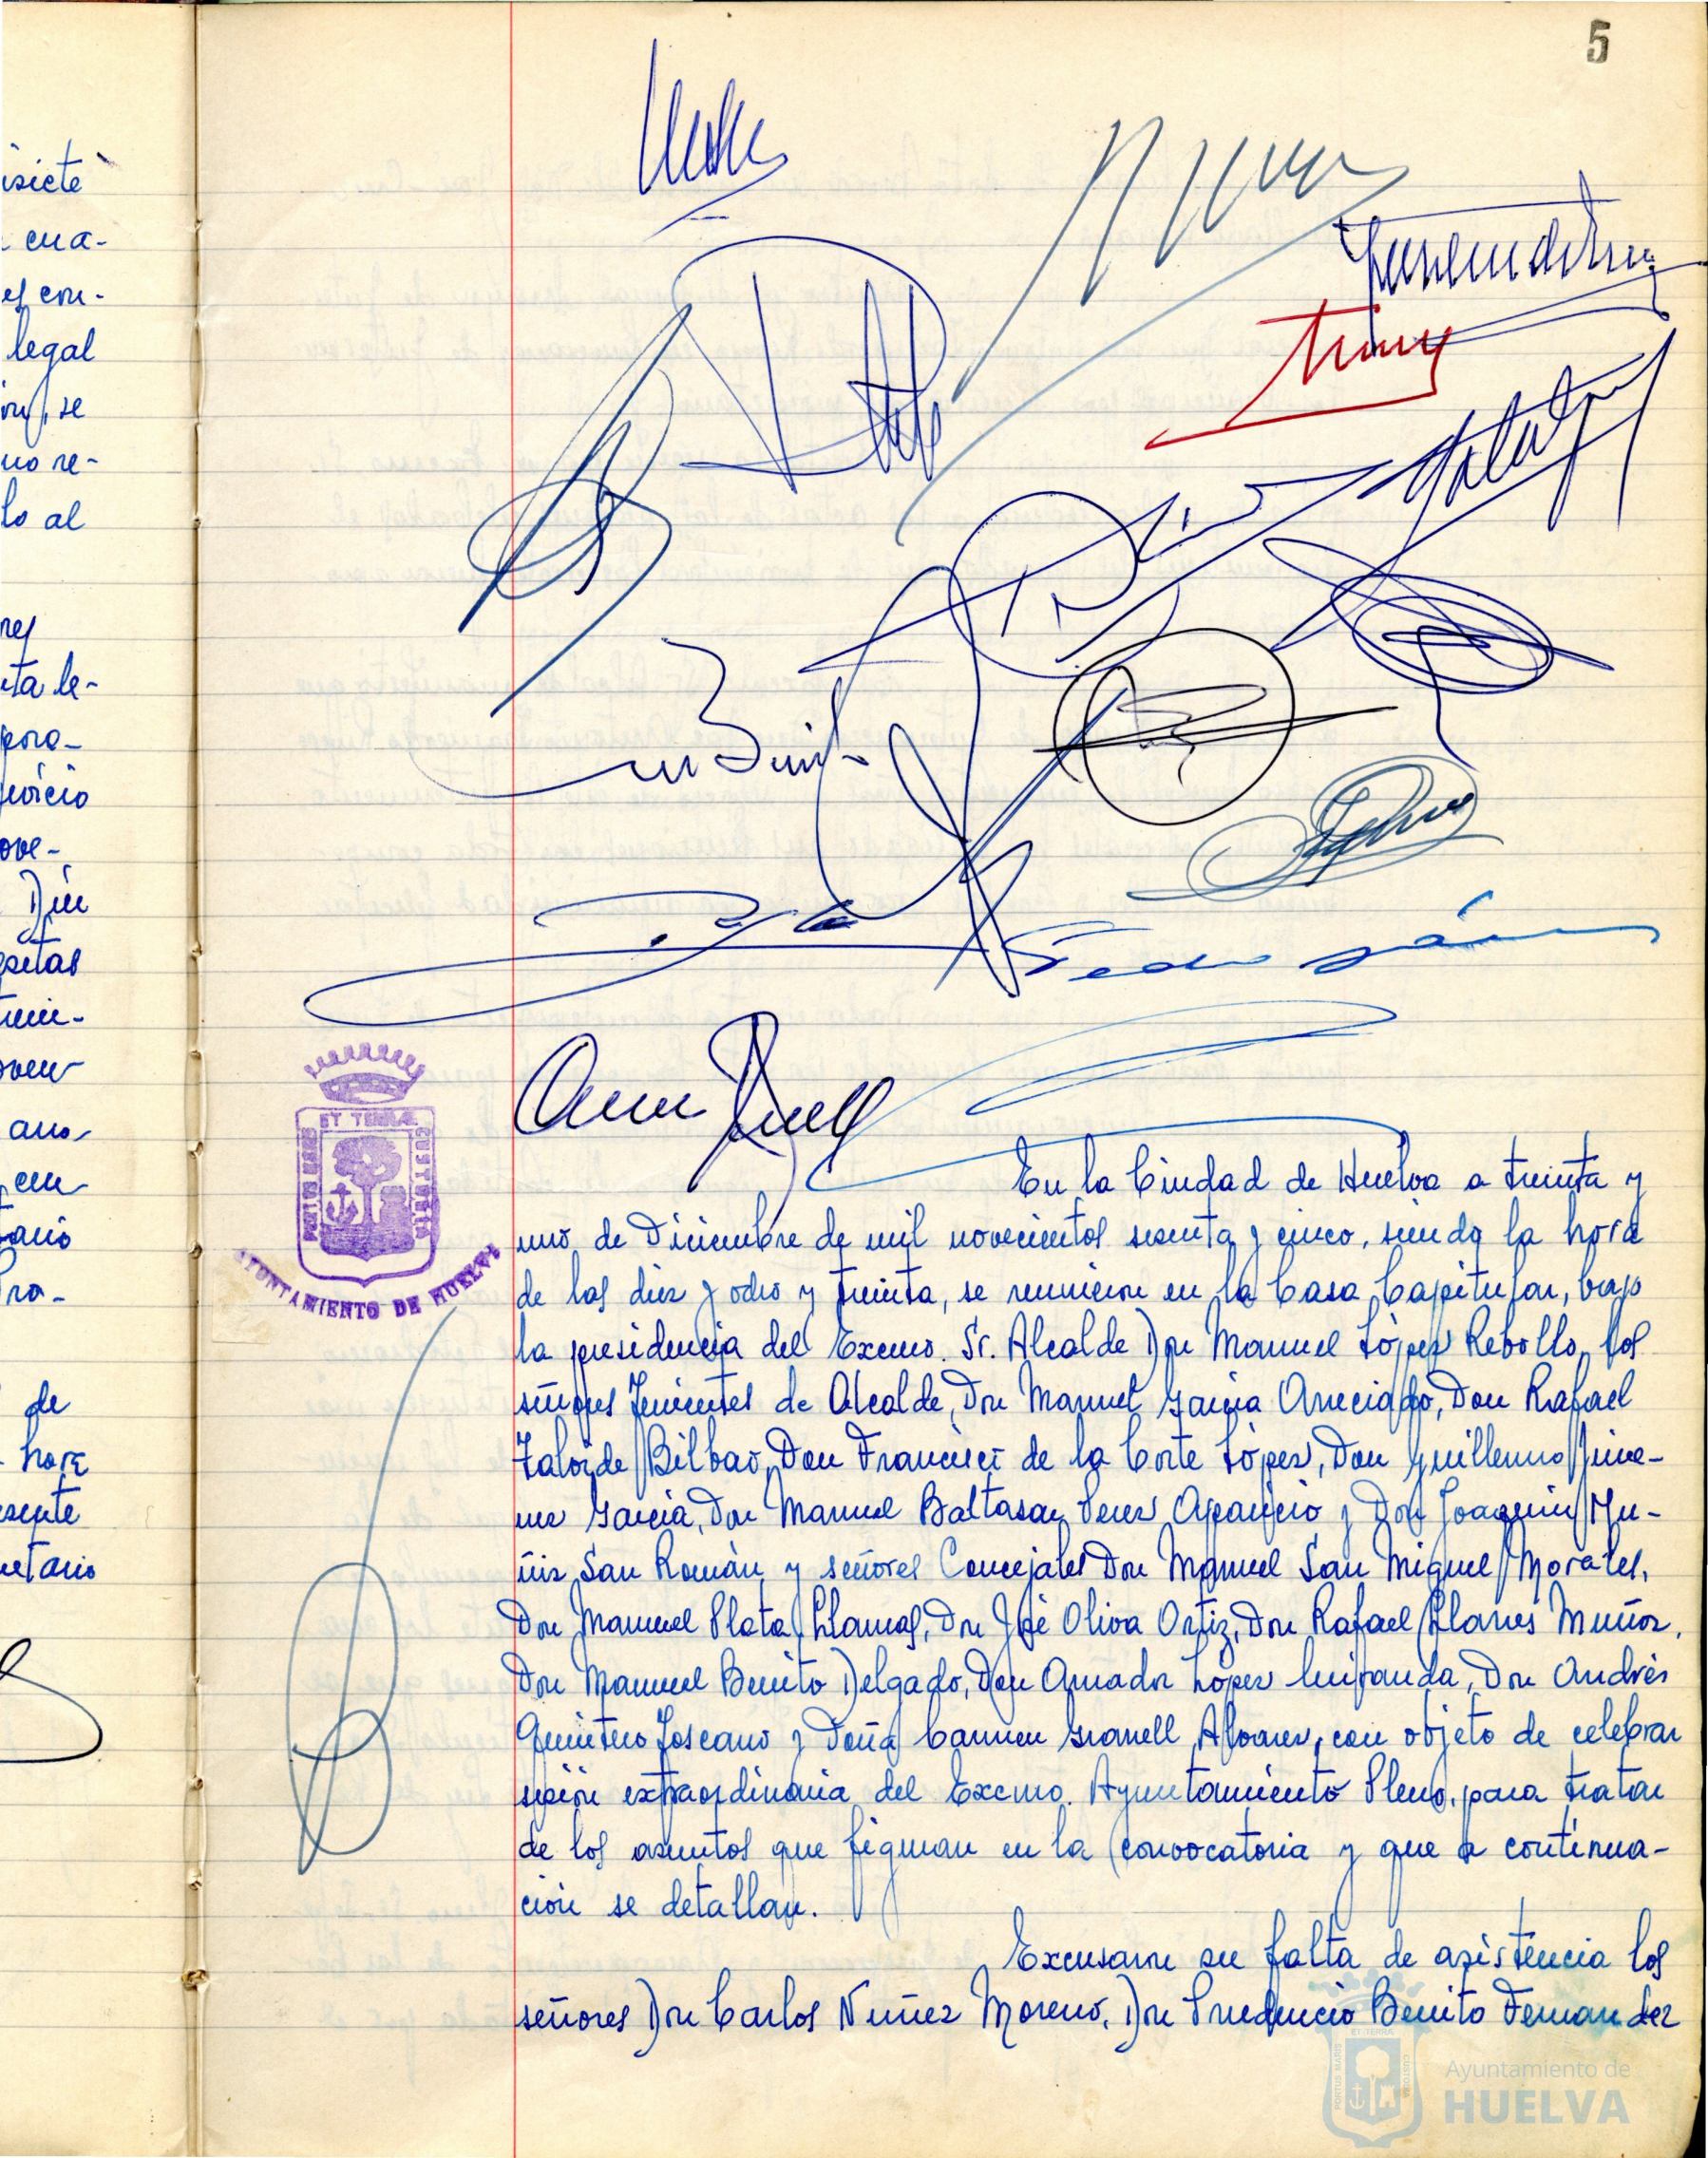 5
isiete
cua-
es con-
legal
se
no re-
lo al
ta le-
ove-
ano
de
hora
etario
Pedro
ET TERRAE
PORTUS MARIS
CUSTODIA
AYUNTAMIENTO DE HUELVA
En la Ciudad de Huelva a treinta y
uno de Diciembre de mil novecientos sesenta y cinco, siendo la hora
de las diez y ocho y treinta, se reunieron en la Casa Capitular, bajo
la presidencia del Excmo. Sr. Alcalde Don Manuel López Rebollo, los
señores Tenientes de Alcalde, Don Manuel García Don Rafael
Bilbao, Don Francisco de la Corte López, Don Guillermo Jime-
nez García, Don Manuel Baltasar Perez Aparicio y Don Joaquin Mu-
ñiz San Román, y señores Concejales Don Manuel San Miguel Morales,
Don Manuel Plata Llamas, Don José Oliva Ortiz, Don Rafael Llanes Muñoz,
Don Manuel Benito Delgado, Don Amador López Miranda, Don Andrés
Quintero Toscano y Doña Carmen Granell Alvarez, con objeto de celebrar
sesión extraordinaria del Excmo. Ayuntamiento Pleno, para tratar
de los asuntos que figuran en la convocatoria y que a continua-
ción se detallan.
Excusaron su falta de asistencia los
señores Don Carlos Nuñez Moreno, Don Prudencio Benito Fernandez
Ayuntamiento de
HUELVA